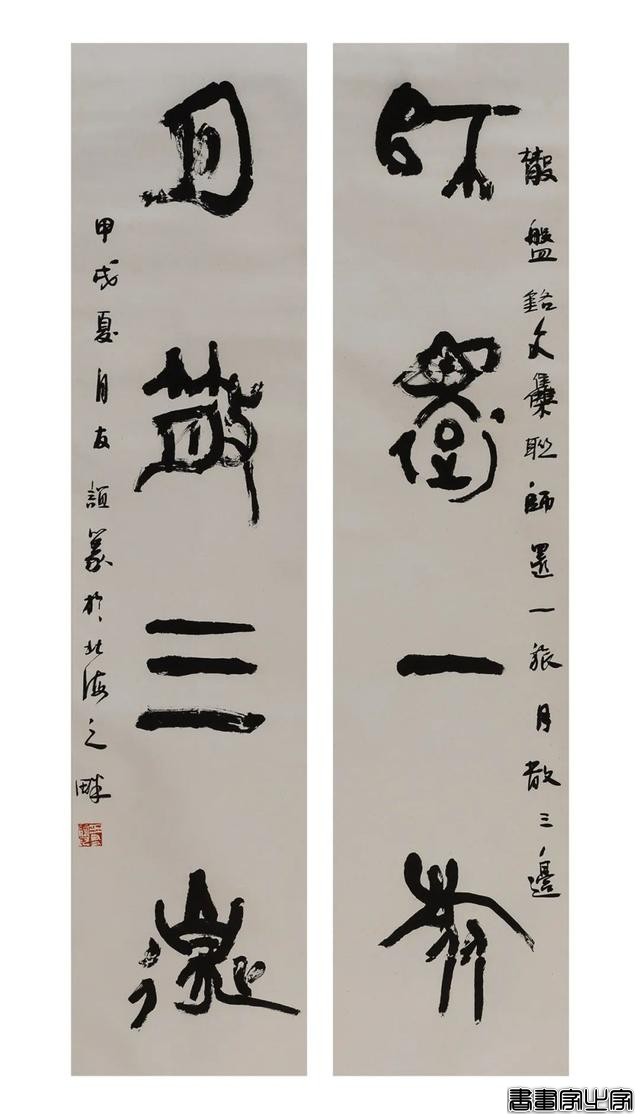 散盤銘文集聯師還一旅月散三邊
師還一旅
月散三邊
甲戌夏月友誼篆於北海之畔
書畫家之家